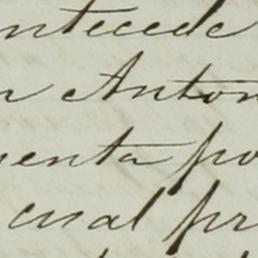 ntecede
n Anton
enta po
cual pr